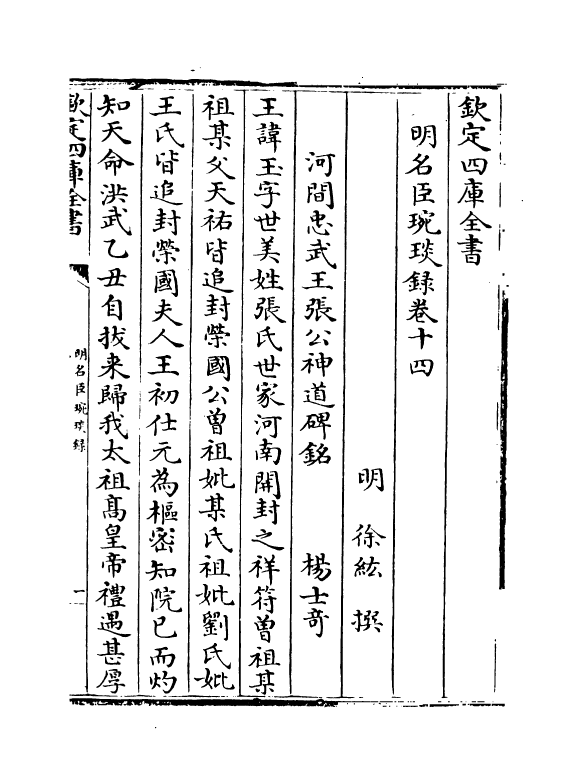 欽定四庫全書
明名臣琬琰録卷十四
明　徐紘　撰
河間忠武王張公神道碑銘　楊士竒
王諱玉字世美姓張氏世家河南開封之祥符曽祖某
祖某父天祐皆追封榮國公曽祖妣某氏祖妣劉氏妣
王氏皆追封榮國夫人王初仕元為樞密知院已而灼
知天命洪武乙丑自拔来歸我太祖髙皇帝禮遇甚厚
欽定四庫全書
明名臣琬琰録
一